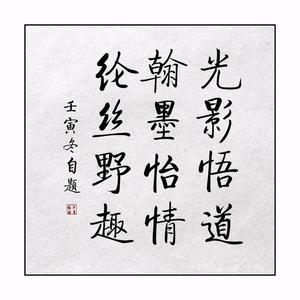 光影悟道
翰墨怡情
纶丝野趣
壬寅冬自题